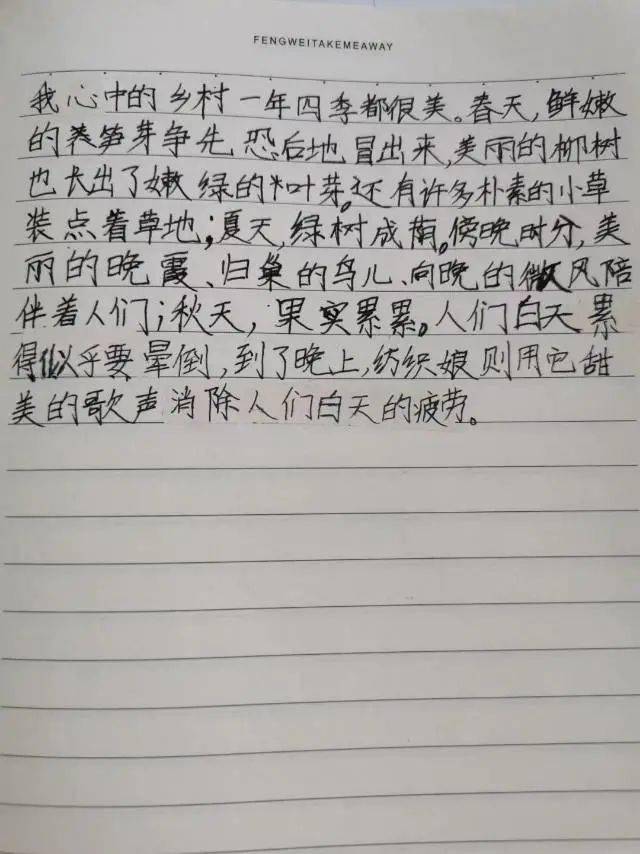 FENGWEITAKEMEAWAY
我心中的乡村一年四季都很美。春天,鲜嫩
的笋芽争先恐后地冒出来,美丽的柳树
也长出了嫩绿的叶芽。还有许多朴素的小草
装点着草地;夏天,绿树成荫。傍晚时分,美
丽的晚霞、归巢的鸟儿、向晚的微风陪
伴着人们;秋天,果实累累。人们白天累
得似乎要晕倒,到了晚上,纺织娘则用它甜
美的歌声消除人们白天的疲劳。